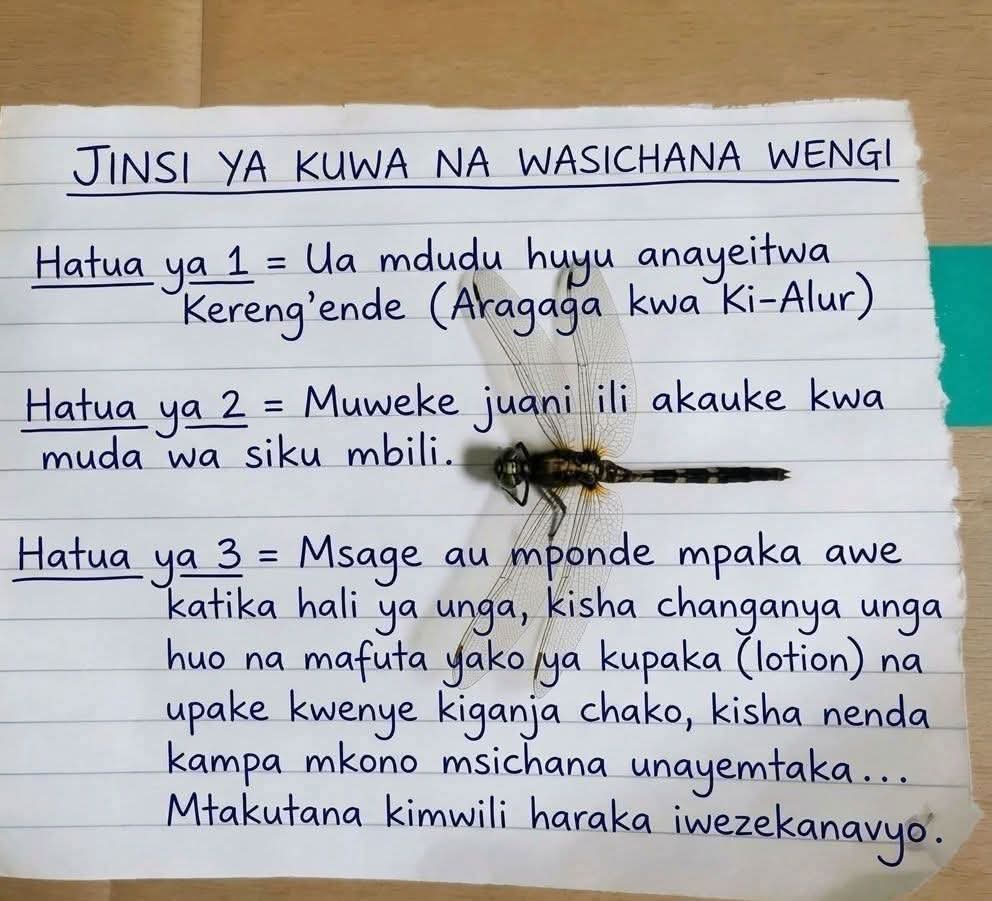 JINSI YA KUWA NA WASICHANA WENGI
Hatua ya 1 = Ua mdudu huyu anayeitwa
Kereng'ende (Aragaga kwa Ki-Alur)
Hatua ya 2 = Muweke juani ili akauke kwa
muda wa siku mbili.
Hatua ya 3 = Msage au mponde mpaka awe
katika hali ya unga, kisha changanya unga
huo na mafuta yako ya kupaka (lotion) na
upake kwenye kiganja chako, kisha nenda
kampa mkono msichana unayemtaka...
Mtakutana kimwili haraka iwezekanavyo.